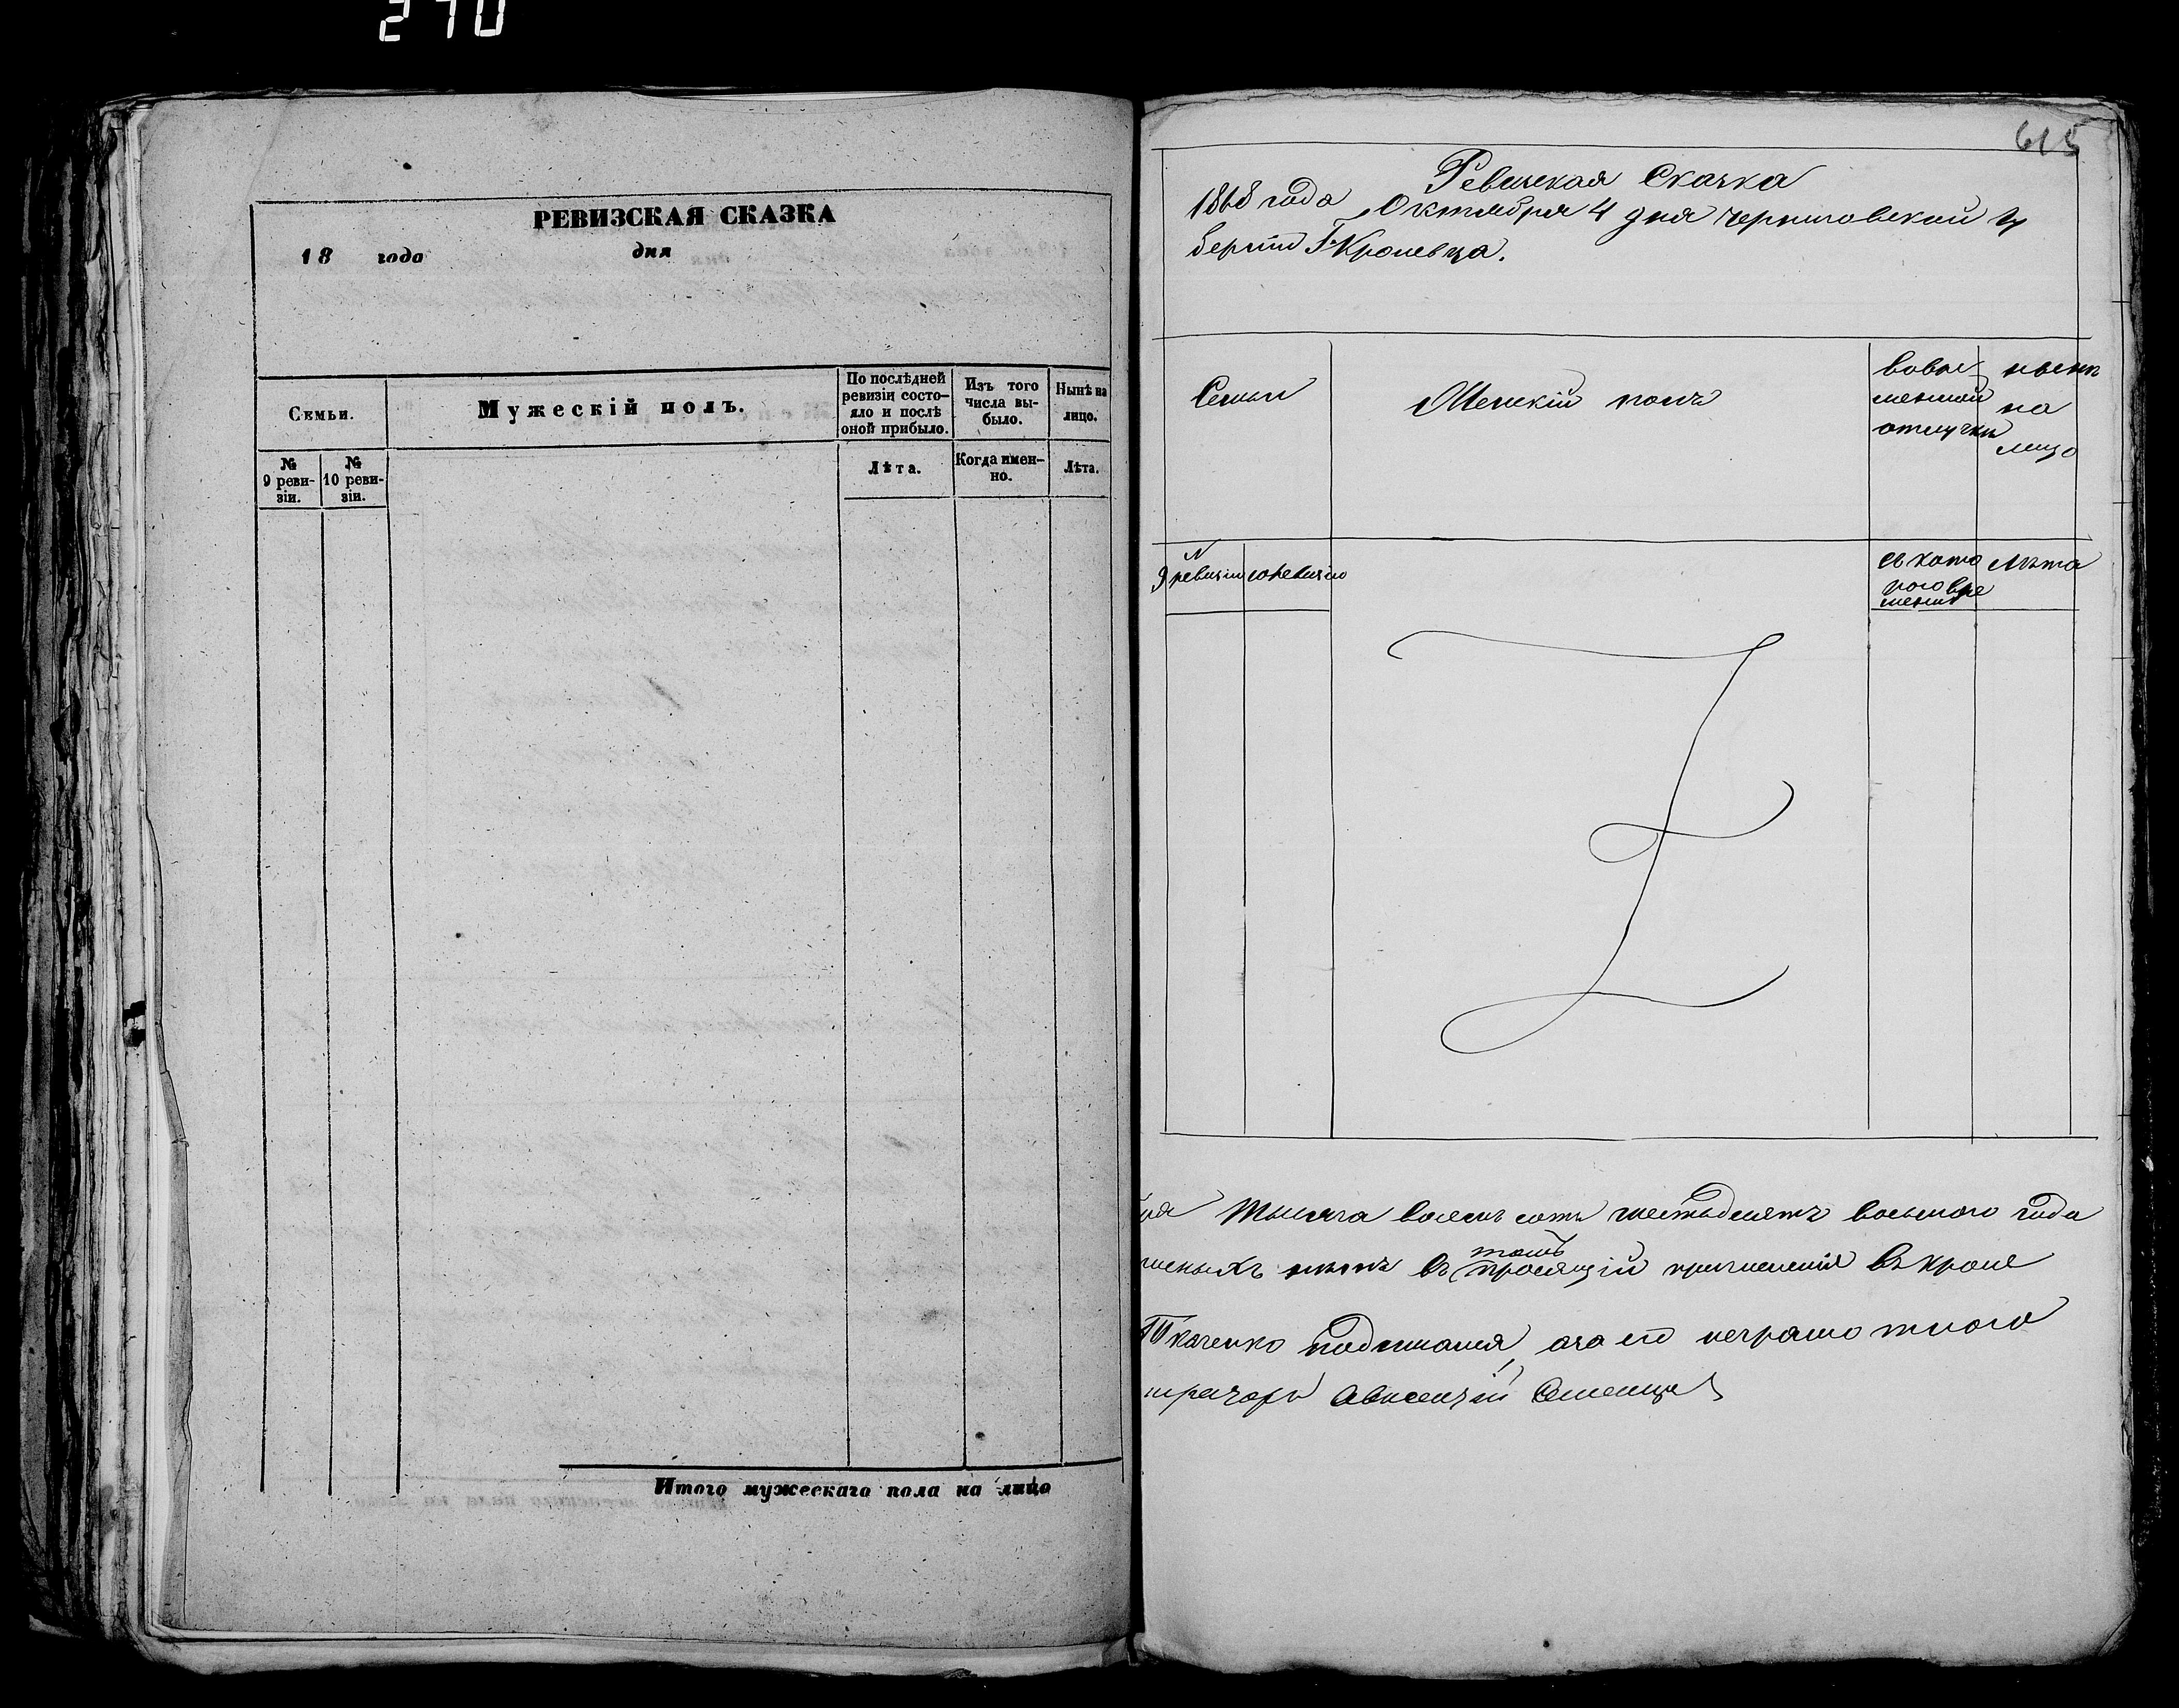 270
РЕВИЗСКАЯ СКАЗКА
18 года дня
Семьи.
Мужескій полъ.
По послѣдней ревизіи состо-
яло и послѣ оной прибыло.
Изъ того числа вы-
было.
Нынѣ на лицо.
№ 9 реви-
зіи.
№ 10 реви-
зіи.
Лѣта.
Когда имен-
но.
Лѣта.
Итого мужескаго пола на лицо
615
Ревизская Сказка
1868 года Октября 4 дня черниговской гу
берніи Г. Кролевца.
Семьи
Женскій полъ
вовре
менной
отлучки
нынѣ
на
лицо
N
9 ревизіи
10 ревизіи
съ кото
рого вре
мени
лѣта
тысяча восемь сотъ шестьдесятъ восьмого года
въ просящій причисленія въ кроле
томъ
Ткаченко неграмотного